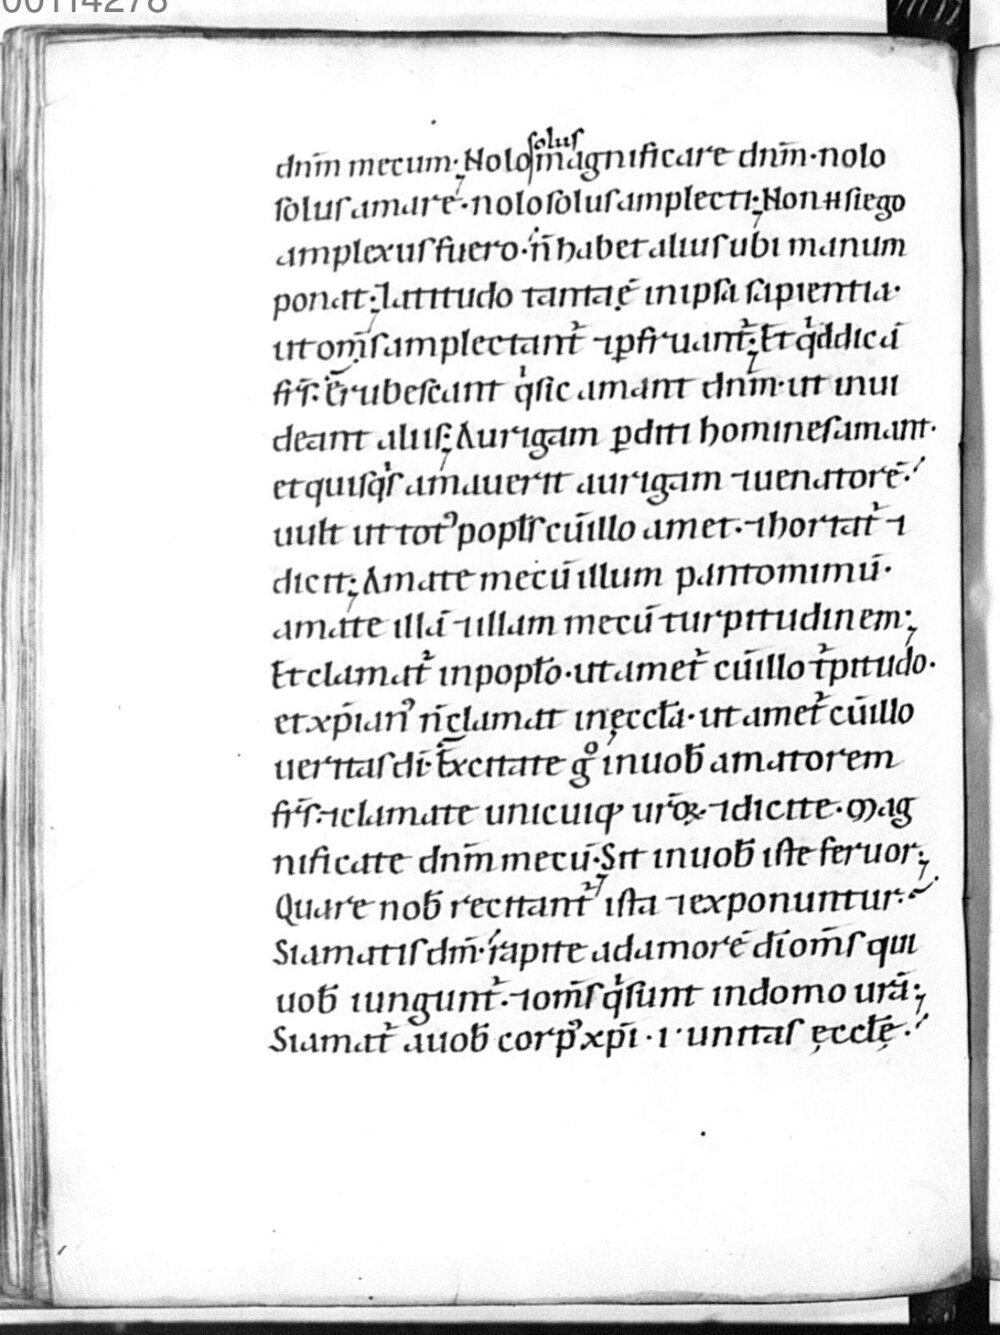 00114278
solus
dnm̄ mecum; Nolo magnificare dnm̄· nolo
solus amare· nolo solus amplecti; Non ñ si ego
amplexus fuero· ñ habet alius ubi manum
ponat; Latitudo tanta ę̄ in ipsa sapientia·
ut om̄s amplectant᷑ ⁊ pfruant᷑; Et qͥd dicā
fr̄s· Erubescant qͥ sic amant dnm̄· ut inui
deant aliis; Aurigam pditi homines amant·
et quisqͥs amauerit aurigam ⁊ uenatorē·
uult ut totꝰ popl̄s cū illo amet· ⁊ hortat᷑ ⁊
dicit; Amate mecū illum pantomimū·
amate illā ⁊ illam mecū turpitudinem;
Et clamat᷑ in popl̄o· ut amet᷑ cū illo t᷑pitudo·
et xp̄ianꝰ ñ clamat in ęccl̄a· ut amet᷑ cū illo
ueritas dī· Excitate gͦ in uob̄ amatorem
fr̄s· ⁊ clamate unicuiqꝫ ur̄oꝝ ⁊ dicite· Mag
nificate dnm̄ mecū· Sit in uob̄ iste feruor;
Quare nob̄ recitant᷑ ista ⁊ exponuntur·
Si amatis dm̄· rapite ad amorē dī om̄s qui
uob̄ iungunt᷑· ⁊ om̄s qͥ sunt in domo ur̄ā;
Si amat᷑ a uob̄ corpꝰ xp̄i· i· unitas ęccl̄ę·